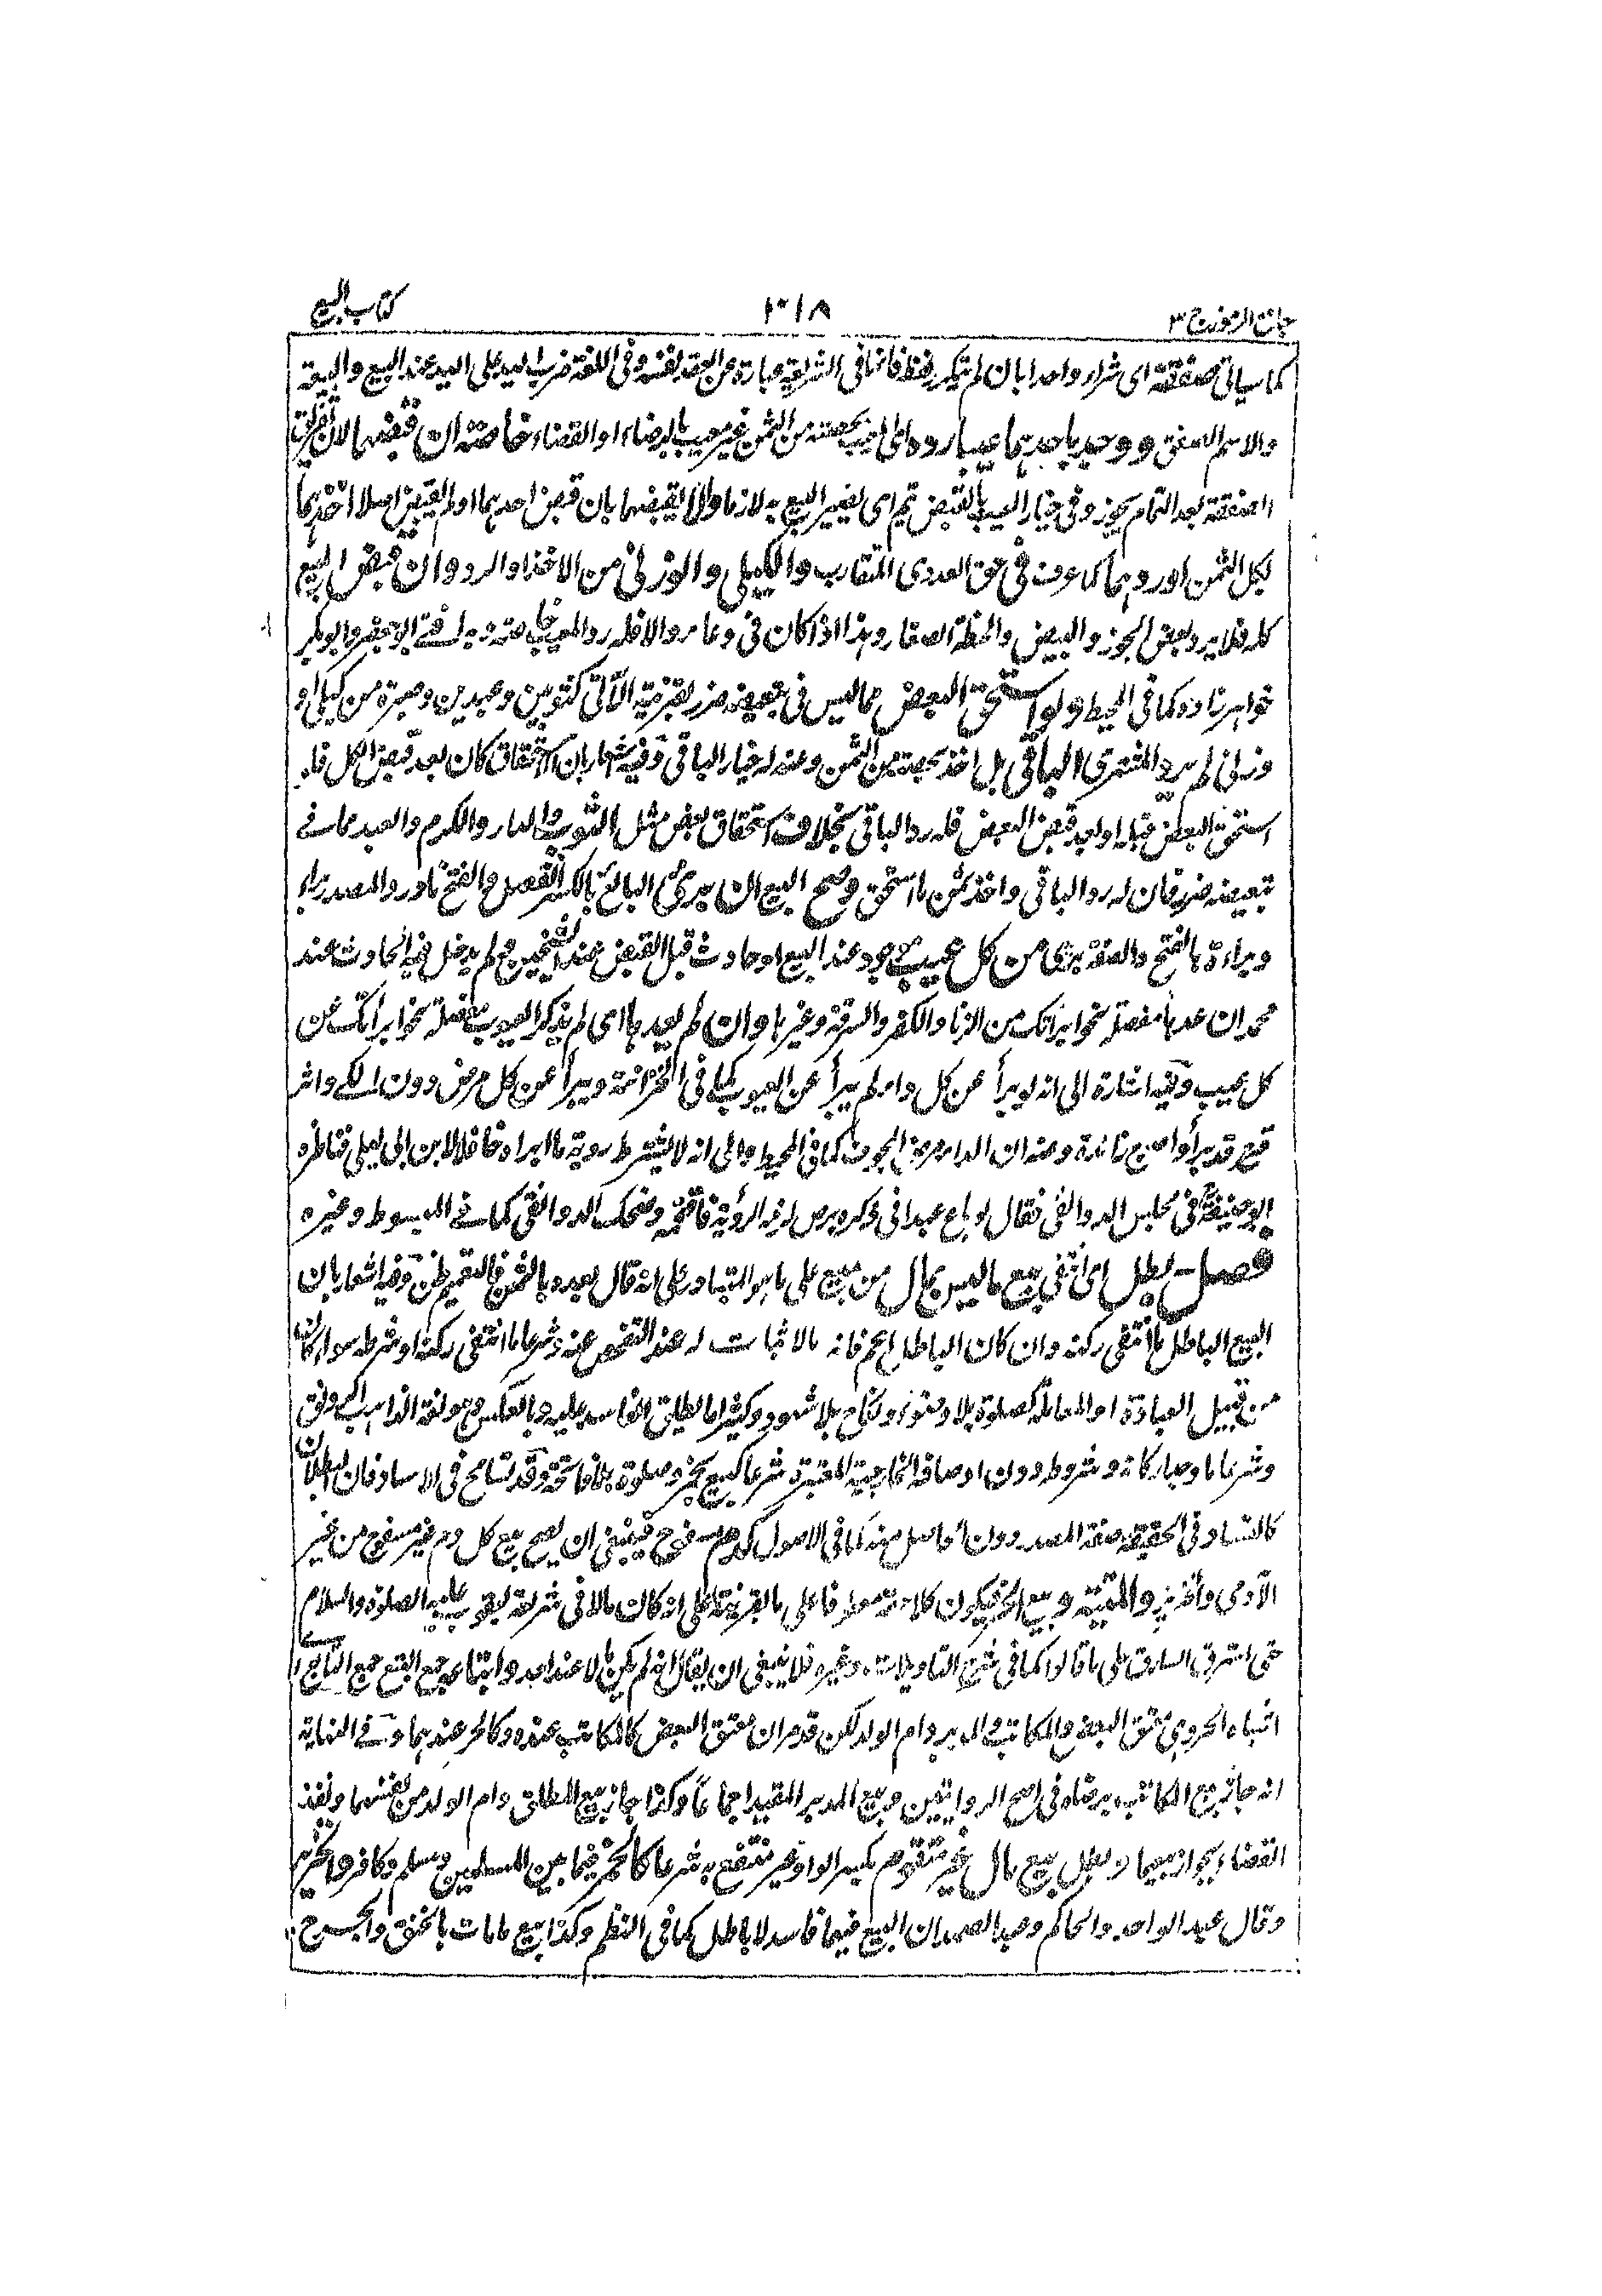 جامع الرموز ج ٣
٣١٨
كتاب البيع
كما سياتى صفقة اى شراء واحدا بان لم يتكرر لفظ فانها فى الشريعة عبارة عن العقد نفسه وفى اللغة ضرب اليد على اليد عند البيع والبيعة
والاسم الصفق ووجد باحدهما عيبا رده اى المعيب بحصته من الثمن غير معيب بالرضاء او القضاء خاصة ان قبضهما لان تفريق
الصفقة بعد التمام يجوز وفى خيار العيب بالقبض تم اى يصير البيع به لازما والا يقبضهما بان قبض احدهما او لم يقبض اصلا اخذهما
بكل الثمن او ردهما كما عرف فى حق العددى المتقارب والكيلى والوزنى من الاخذ والرد وان قبض المبيع
كله فلا يرد بعض الجوز والبيض والصغار وهذا اذا كان فى وعاء والا فله رد المعيب خاصة وبه افتى ابو جعفر وابو بكر
خواهر زاده كما فى المحيط ولو استحق البعض مما ليس فى تبعيضه ضرر بقرينة الآتى كثوبين وعبدين وصبرة من كيلى او
وزنى لم يرد المشترى الباقى بل اخذ بحصته من الثمن وعنه له خيار الباقى وفيه اشعار بان الاستحقاق كان بعد قبض الكل فلو
استحق البعض قبله او بعد قبض البعض فله رد الباقى بخلاف استحقاق بعض مثل الثوب والدار والكرم والعبد مما فى
تبعيضه ضرر فان له رد الباقى واخذ ثمن ما استحق وصح البيع ان برئ البائع بالكسر الفصل والفتح نادر والمصدر براء
وبراءة بالفتح والصفة برئ من كل عيب موجود عند البيع او حادث قبل القبض عند الشيخين ولم يدخل فيه الحادث عند
محمد ان عدها مفصلة نحو ابرأتك من الزنا والكفر والسرقة وغيرها وان لم يعدها اى لم يذكر العيوب مفصلة نحو ابرأتك من
كل عيب وفيه اشارة الى انه لو يبرأ عن كل داء لم يبرأ عن العيوب كما فى الخزانة ويبرأ عن كل مرض دون الكى واثر
قرح قد برأ واصبع زائدة وعنه ان الداء مرض الجوف كما فى المحيط والى انه لا يشترط رؤية ما ابراه خلافا لابن ابى ليلى فناظره
ابو حنيفة فى مجلس الدوانقى فقال لو باع عبدا فى ذكره برص لزمه الرؤية فافحمه وضحك الدوانقى كما فى المبسوط وغيره
فصل بطل اى انتفى بيع ما ليس بمال من مبيع على ما هو المتبادر على انه قال بعده وبالثمن فالتعميم ظن وفيه اشعار بان
البيع الباطل ما انتفى ركنه وان كان الباطل اعم فانه ما لا ثبات له عند التفحص عنه وشرعا ما انتفى ركنه او شرطه سواء كان
من قبيل العبادة او المعاملة كصلوة بلا وضوء ونكاح بلا شهود وكثيرا ما يطلق الفاسد عليه وبالعكس وهو لغة الذاهب الرونق
وشرعا ما وجد اركانه وشروطه دون اوصافه الخارجية المعتبرة شرعا كبيع بخمر وصلوة بلا فاتحة وقد تسامح فى الاسناد فان البطلان
كالفساد فى الحقيقة صفة المصدر دون الحاصل منه كما فى الاصول كدم مسفوح فينبغى ان يصح بيع كل دم غير مسفوح من غير
الآدمى والخنزير والميتة وبيع الحر فيكون كلاهما معطوفا على ما بالقرينة على انه كان مالا فى شريعة يعقوب عليه الصلوة والسلام
حتى استرق السارق على ما قالوا كما فى شرح التاويلات وغيره فلا ينبغى ان يقال انه لم يكن مالا عند احد واتباعه جمع التبع جمع التابع اى
اشباه الحر وهى معتق البعض والمكاتب والمدبر وام الولد لكن قد مر ان معتق البعض كالمكاتب عنده وكالحر عندهما وفى النهاية
انه جاز بيع المكاتب برضاه فى اصح الروايتين وبيع المدبر المقيد اجماعا وكذا جاز بيع المطلق وام الولد من نفسهما ونفذ
القضاء بجواز بيعهما وبطل بيع مال غير متقوم بكسر الواو غير منتفع به شرعا كالخمر فيما بين المسلمين ومسلم وكافر والخنزير
وقال عبد الواحد والحاكم وعبد الصمد ان البيع فيهما فاسد لا باطل كما فى النظم وكذا بيع ما مات بالخنق والجرح